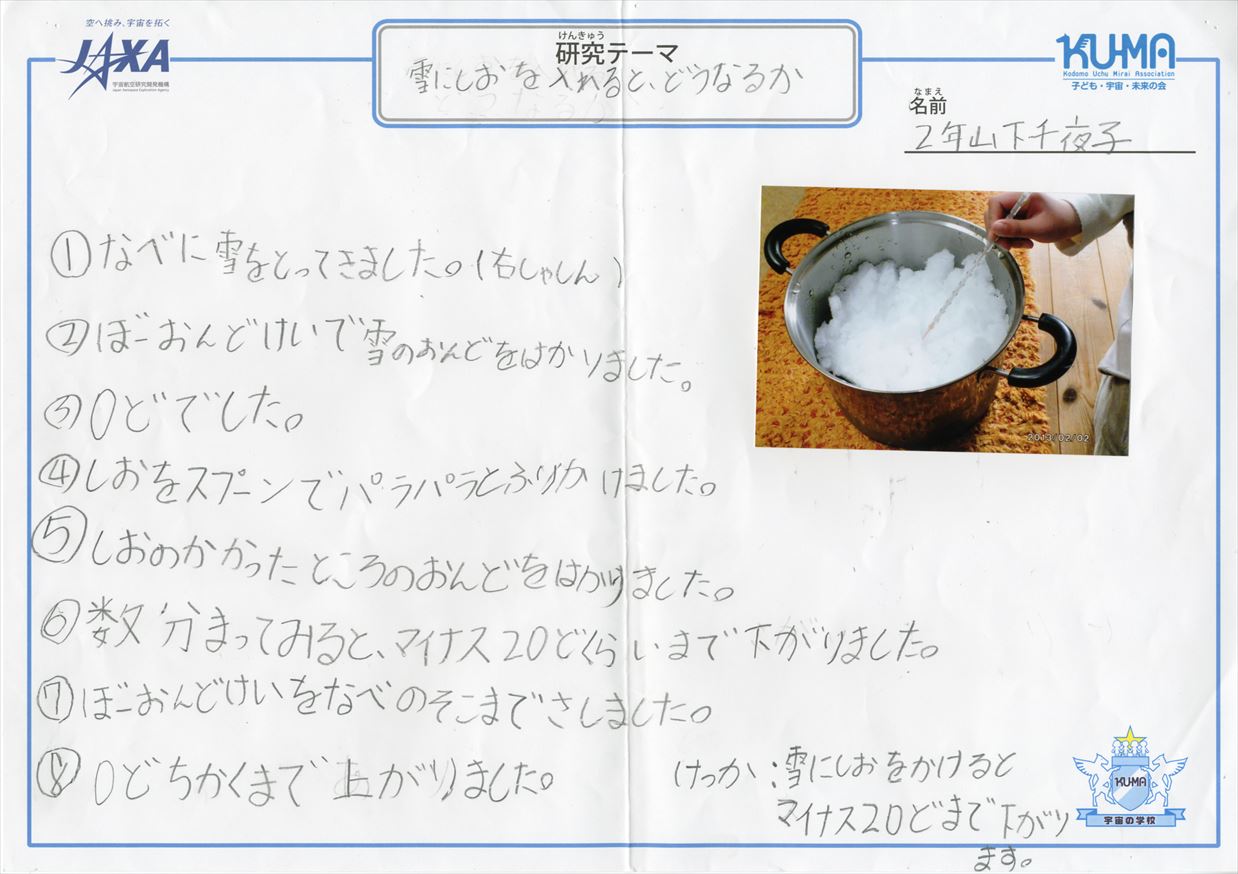 空へ挑み、宇宙を拓く
JAXA
宇宙航空研究開発機構
Japan Aerospace Exploration Agency
けんきゅう
研究テーマ
雪にしおを入れると、どうなるか
KU-MA
Kodomo Uchu Mirai Association
子ども・宇宙・未来の会
なまえ
名前
2年山下千夜子
①なべに雪をとってきました。(右しゃしん)
②ぼーおんどけいで雪のおんどをはかりました。
③0どでした。
④しおをスプーンでパラパラとふりかけました。
⑤しおのかかったところのおんどをはかりました。
⑥数分まってみると、マイナス20どくらいまで下がりました。
⑦ぼーおんどけいをなべのそこまでさしました。
⑧0どちかくまで上がりました。
2013/02/02
けっか:雪にしおをかけると
マイナス20どまで下がり
ます。
KU-MA
宇宙の学校